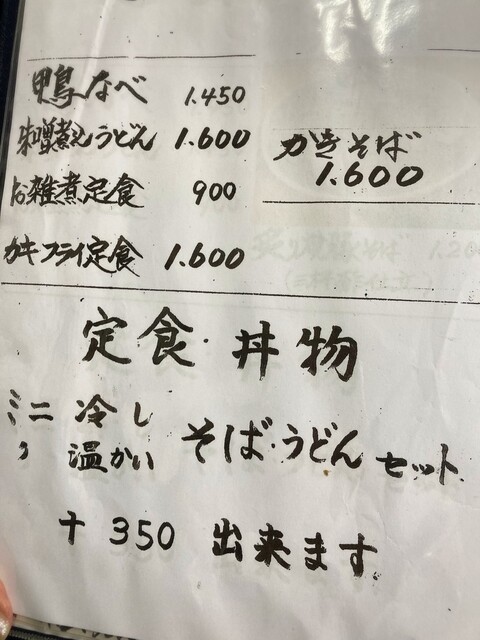 鴨なべ 1.450
味噌煮込うどん 1.600
お雑煮定食 900
カキフライ定食 1.600
かきそば
1.600
定食・丼物
ミニ 冷し
〃 温かい
そば・うどん セット
+ 350 出来ます